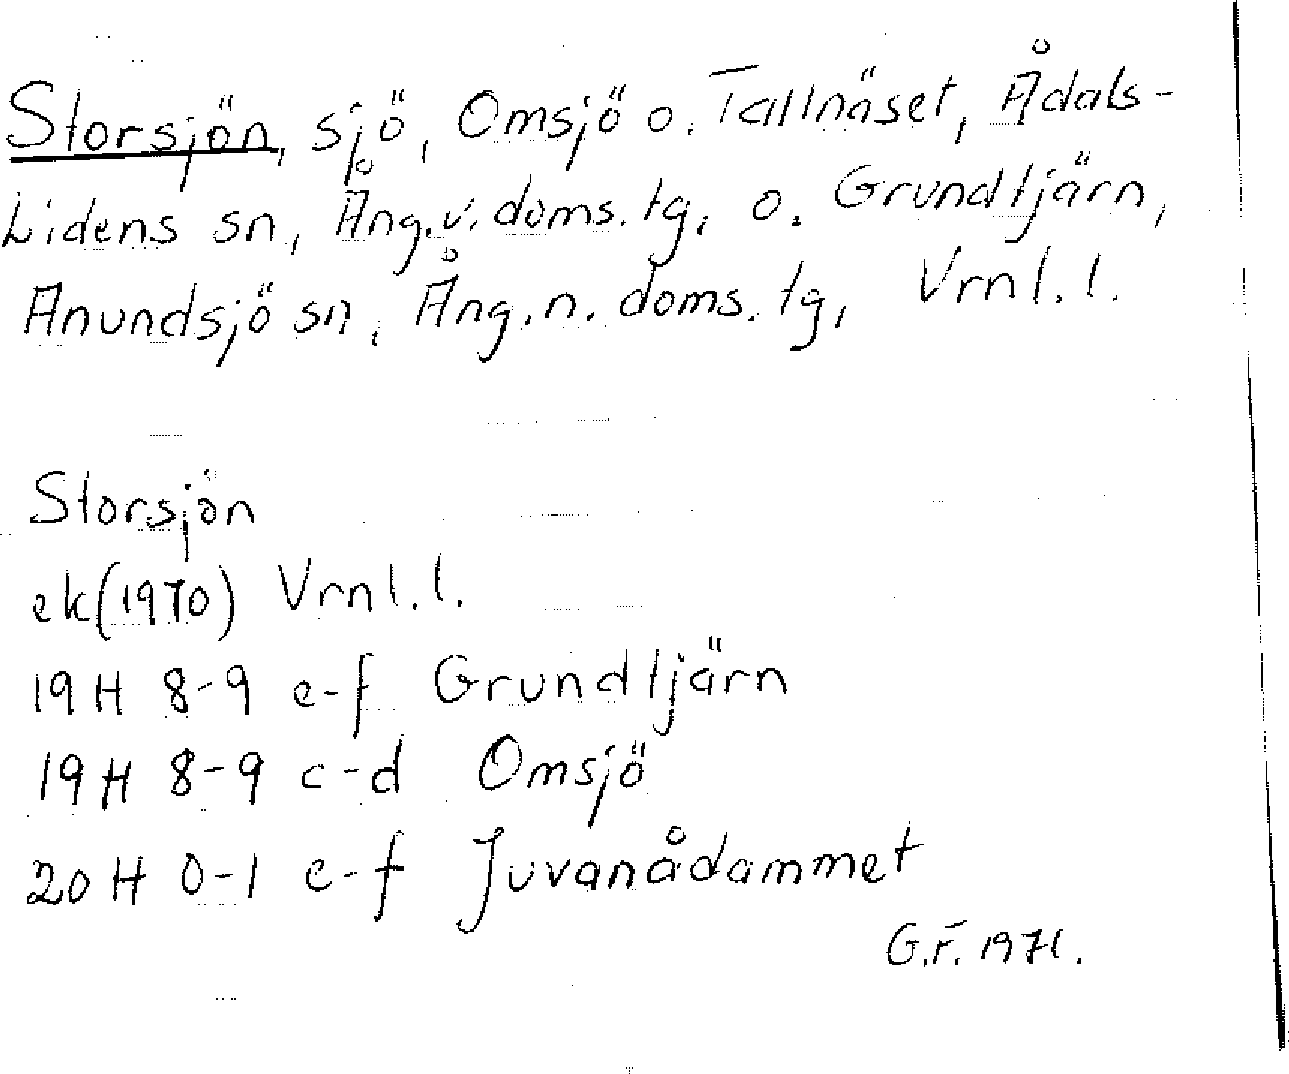 Storsjön, sjö, Omsjö o. Tallnäset, Ådals-
Lidens sn, Ång.v. doms. tg, o. Grundtjärn,
Anundsjö sn, Ång.n. doms. tg, Vrnl.l.
Storsjön
ek(1970) Vrnl.l.
19 H 8-9 e-f Grundtjärn
19 H 8-9 c-d Omsjö
20 H 0-1 e-f Juvanådammet
G.F. 1971.